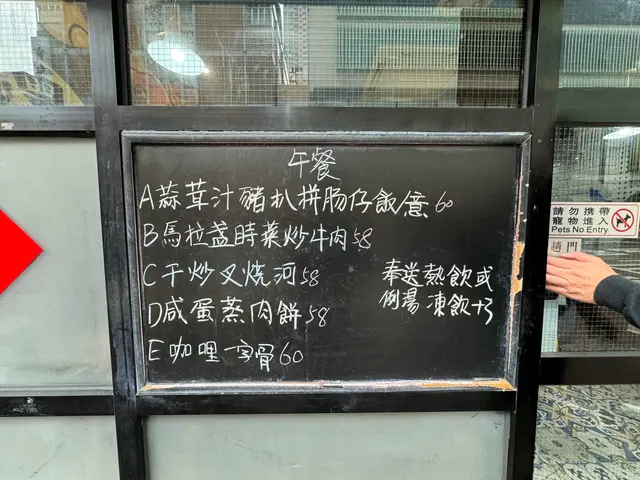 午餐
A蒜茸汁豬扒拼肠仔飯/意60
B馬拉盏時菜炒牛肉58
C干炒叉烧河58
D咸蛋蒸肉餅58
E咖哩一字骨60
奉送熱飲或
例湯凍飲+3
請勿携帶
寵物進入
Pets No Entry
趟門